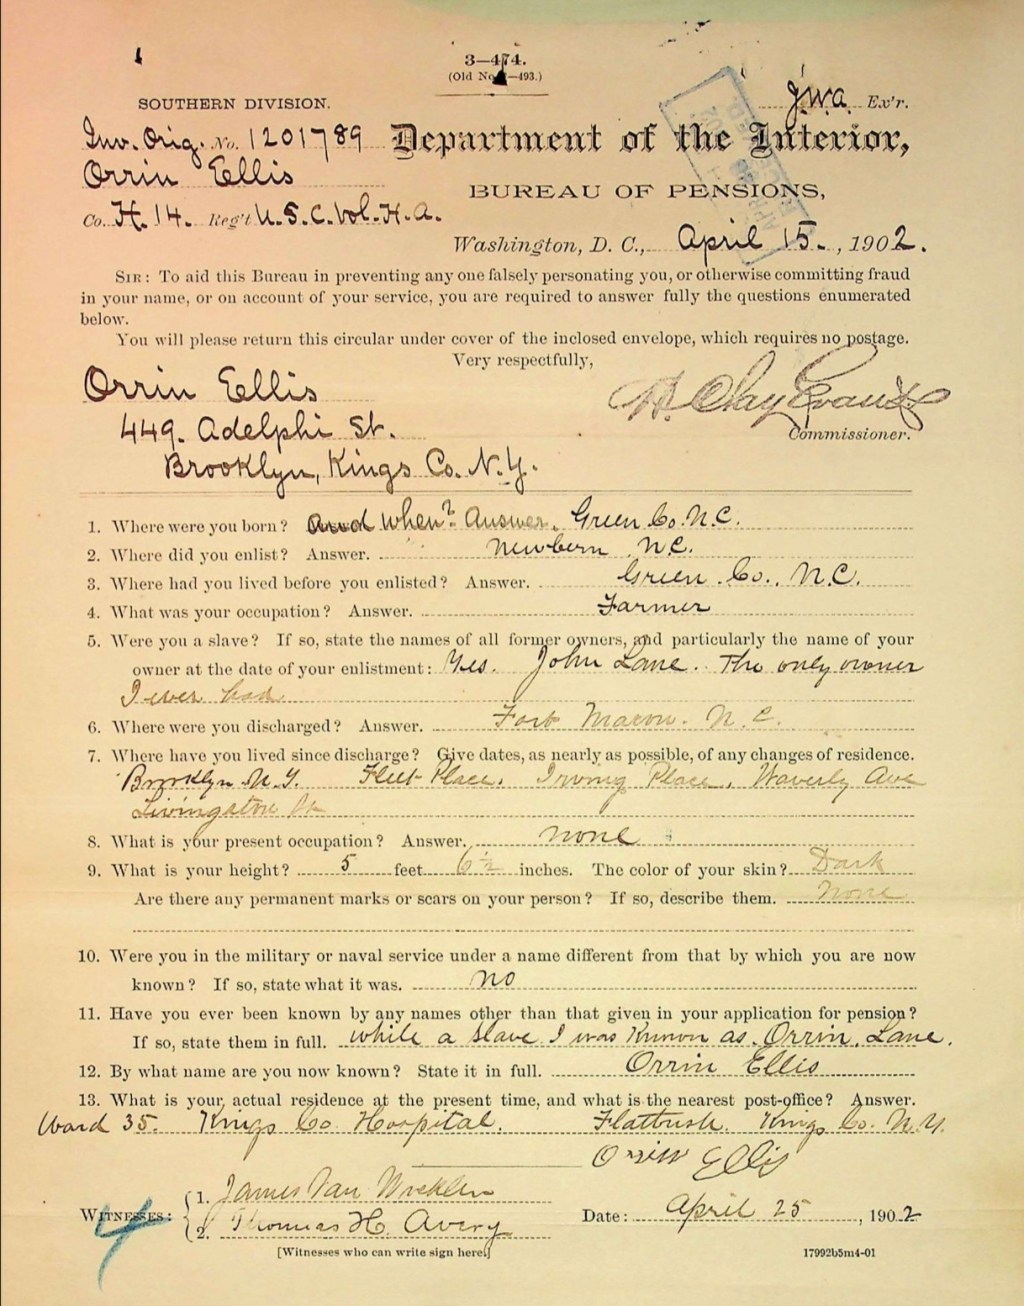 3—474.
(Old No. —493.)
SOUTHERN DIVISION.
J.W.a. Ex'r.
Inv. Orig. No. 1201789 Department of the Interior,
Orrin Ellis
BUREAU OF PENSIONS,
Co. H. 14. Reg't U. S. C. Vol. H. A.
Washington, D. C., April 15., 1902.
SIR: To aid this Bureau in preventing any one falsely personating you, or otherwise committing fraud
in your name, or on account of your service, you are required to answer fully the questions enumerated
below.
You will please return this circular under cover of the inclosed envelope, which requires no postage.
Very respectfully,
Orrin Ellis
H. Clay Evans
449. Adelphi St.
Commissioner.
Brooklyn, Kings Co. N. Y.
1. Where were you born? and when? Answer. Green Co. N.C.
2. Where did you enlist? Answer. Newbern N.C.
3. Where had you lived before you enlisted? Answer. Green Co., N.C.
4. What was your occupation? Answer. Farmer
5. Were you a slave? If so, state the names of all former owners, and particularly the name of your
owner at the date of your enlistment: Yes. John Lane. The only owner
I ever had
6. Where were you discharged? Answer. Fort Macon. N. C.
7. Where have you lived since discharge? Give dates, as nearly as possible, of any changes of residence.
Brooklyn N.Y. Fleet Place. Irving Place, Waverly Ave
Livingston St
8. What is your present occupation? Answer. none
9. What is your height? 5 feet 6½ inches. The color of your skin? Dark
Are there any permanent marks or scars on your person? If so, describe them. None
10. Were you in the military or naval service under a name different from that by which you are now
known? If so, state what it was. no
11. Have you ever been known by any names other than that given in your application for pension?
If so, state them in full. while a slave I was Known as. Orrin. Lane.
12. By what name are you now known? State it in full. Orrin Ellis
13. What is your actual residence at the present time, and what is the nearest post-office? Answer.
Ward 35. Kings Co. Hospital. Flatbush. Kings Co. N.Y.
Orrin Ellis
1. James Van
WITNESSES:
2. Thomas H. Avery
Date: April 25, 1902
[Witnesses who can write sign here.]
17992b5m4-01